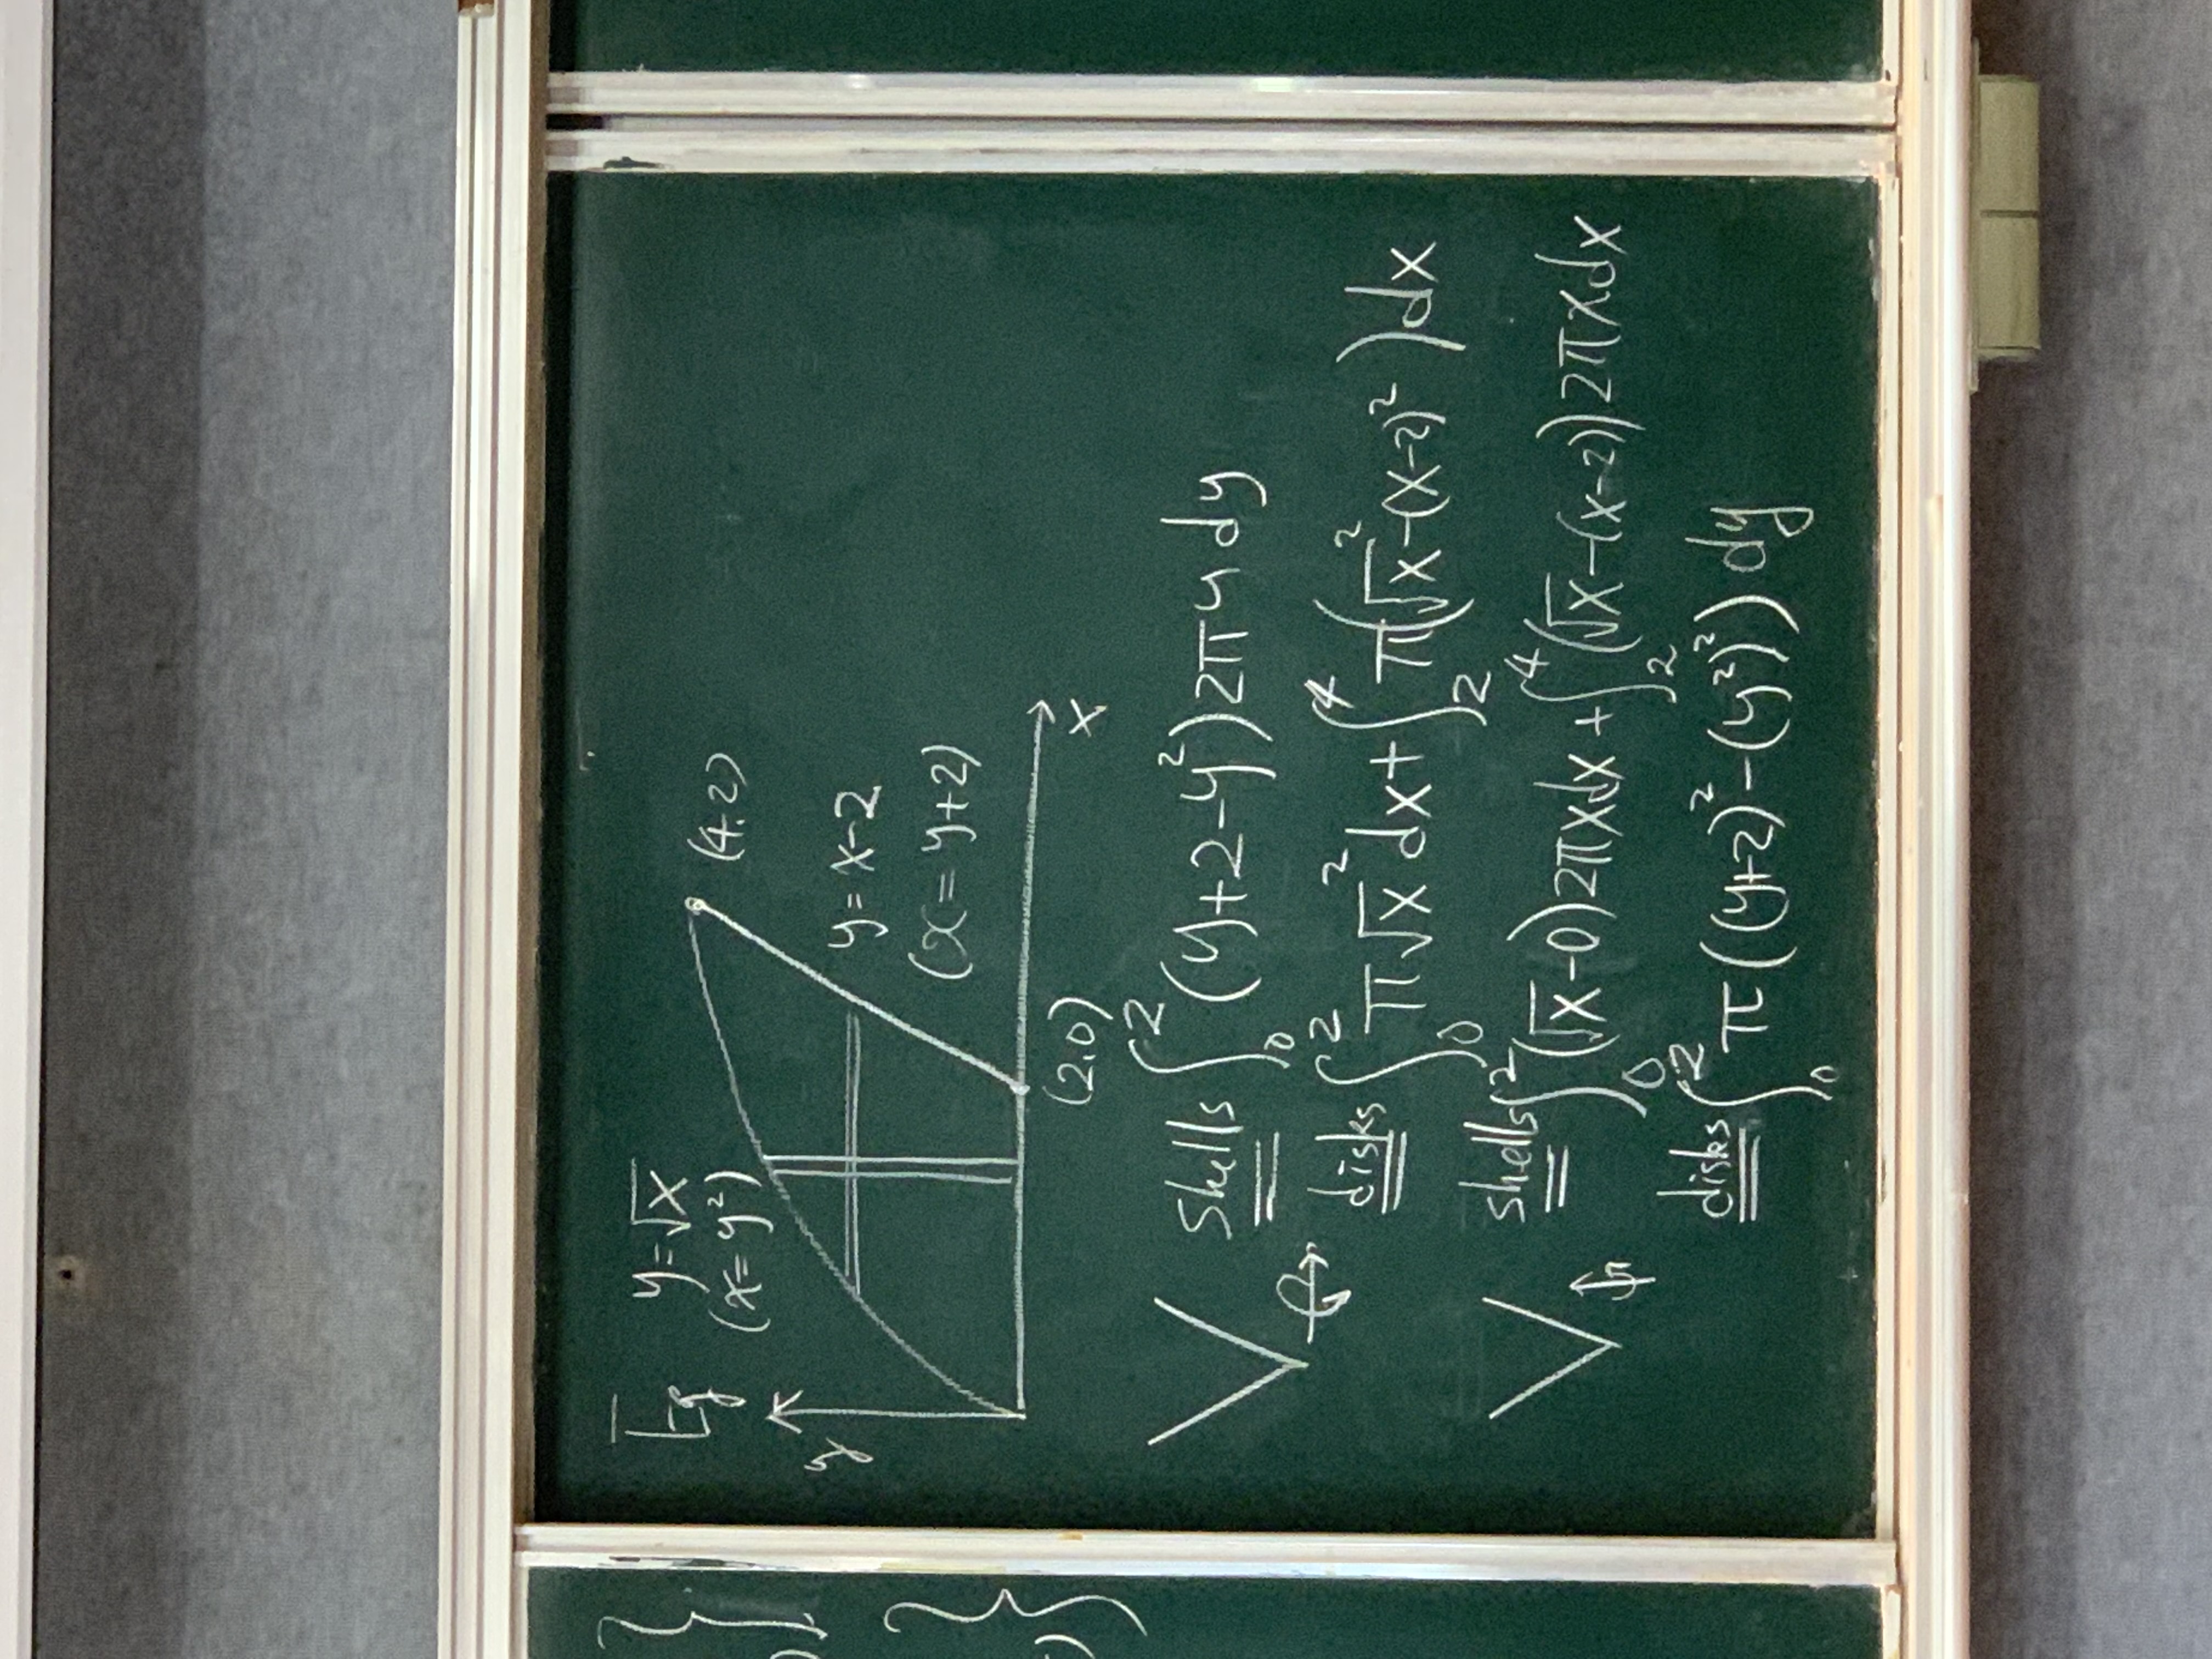 Eg
y=√x
(x=y²)
(4.2)
y
y=x-2
(x=y+2)
x
(2.0)
V shells ∫₀² (y+2-y²)2πy dy
disks ∫₀² π√x² dx + ∫₂⁴ π(√x²-(x-2)²)dx
V shells ∫₀² (√x-0)2πxdx + ∫₂⁴ (√x-(x-2))2πxdx
disks ∫₀² π((y+2)²-(y²)²) dy